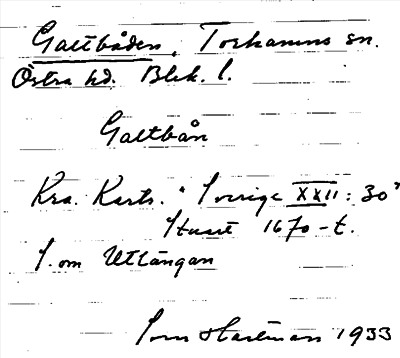 Galtbåden, Torhamns sn.
Östra hd. Blek. l.
Galtbån
Kra. Kart. "Sverige XXII: 30"
Stuart 1670-t.
S. om Utlängan
Hartman 1933